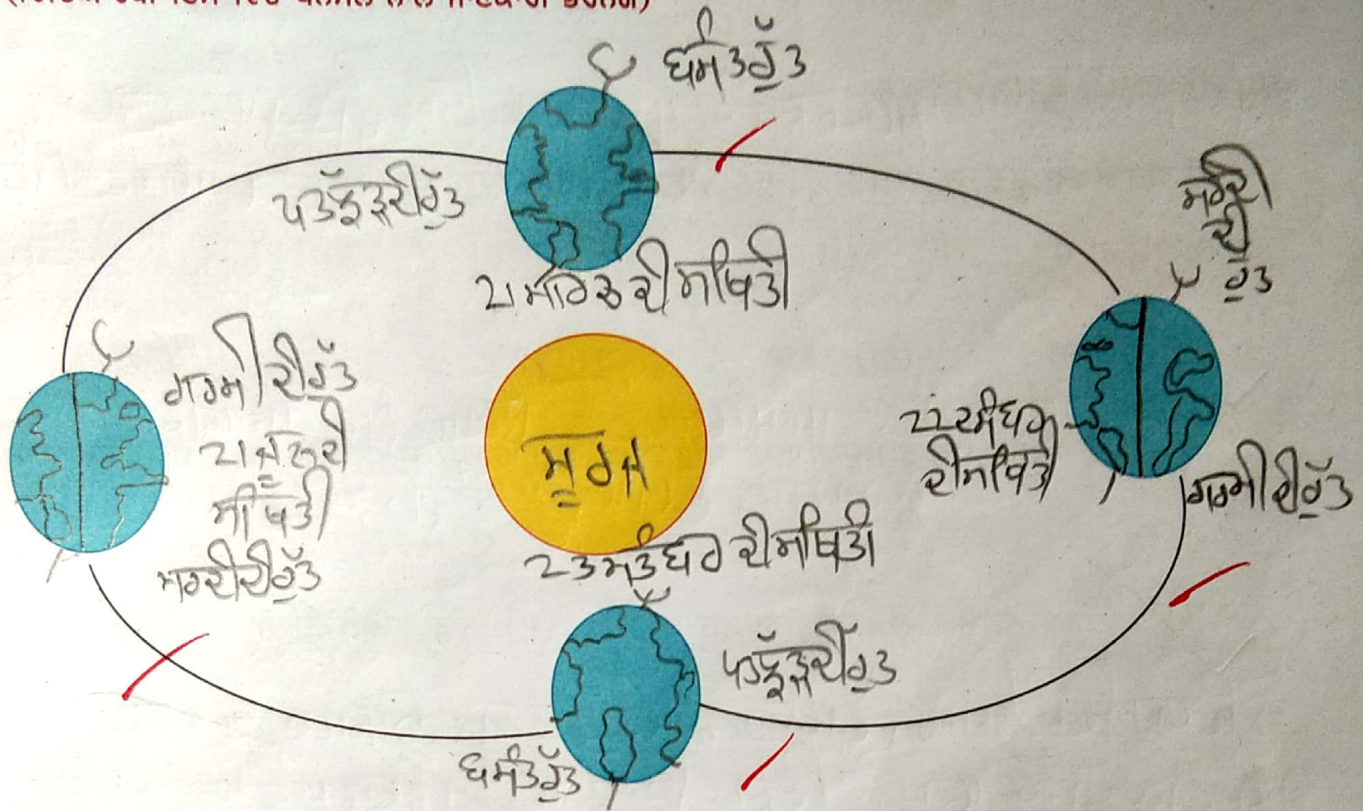 ਬਸੰਤ ਰੁੱਤ
ਪਤਝੱੜ ਦੀ ਰੁੱਤ
21 ਮਾਰਚ ਦੀ ਸਥਿਤੀ
ਸਰਦੀ
ਦੀ
ਰੁੱਤ
ਗਰਮੀ ਦੀ ਰੁੱਤ
21 ਜੂਨ ਦੀ
ਸਥਿਤੀ
ਸਰਦੀ ਦੀ ਰੁੱਤ
ਸੂਰਜ
22 ਦਸੰਬਰ
ਦੀ ਸਥਿਤੀ
ਗਰਮੀ ਦੀ ਰੁੱਤ
23 ਸਤੰਬਰ ਦੀ ਸਥਿਤੀ
ਪਤਝੱੜ ਦੀ ਰੁੱਤ
ਬਸੰਤ ਰੁੱਤ